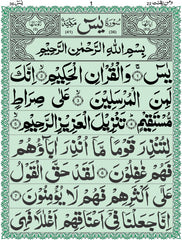 1
سورة يس
بسم الله الرحمن الرحيم
يس والقرآن الحكيم إنك
لمن المرسلين على صراط
مستقيم تنزيل العزيز الرحيم
لتنذر قوما ما أنذر آباؤهم
فهم غفلون لقد حق القول
على أكثرهم فهم لا يؤمنون
إنا جعلنا في أعناقهم أغللا فهي